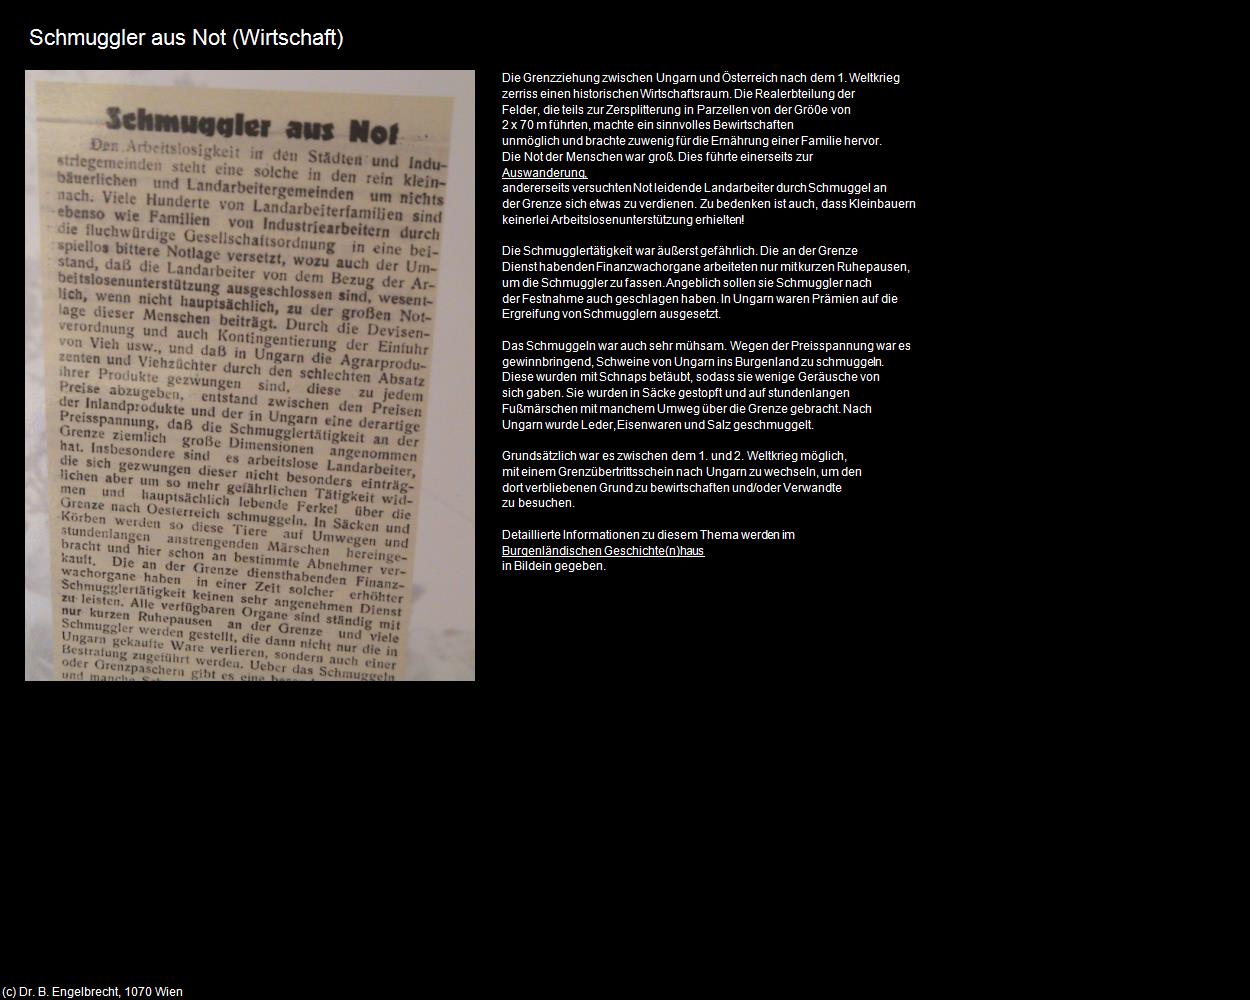 Schmuggler aus Not (Wirtschaft)
Schmuggler aus Not
Den Arbeitslosigkeit in den Städten und Indu-
striegemeinden steht eine solche in den rein klein-
bäuerlichen und Landarbeitergemeinden um nichts
nach. Viele Hunderte von Landarbeiterfamilien sind
ebenso wie Familien von Industriearbeitern durch
die fluchwürdige Gesellschaftsordnung in eine bei-
spiellos bittere Notlage versetzt, wozu auch der Um-
stand, daß die Landarbeiter von dem Bezug der Ar-
beitslosenunterstützung ausgeschlossen sind, wesent-
lich, wenn nicht hauptsächlich, zu der großen Not-
lage dieser Menschen beiträgt. Durch die Devisen-
verordnung und auch Kontingentierung der Einfuhr
von Vieh usw., und daß in Ungarn die Agrarprodu-
zenten und Viehzüchter durch den schlechten Absatz
ihrer Produkte gezwungen sind, diese zu jedem
Preise abzugeben, entstand zwischen den Preisen
der Inlandprodukte und der in Ungarn eine derartige
Preisspannung, daß die Schmugglertätigkeit an der
Grenze ziemlich große Dimensionen angenommen
hat. Insbesondere sind es arbeitslose Landarbeiter,
die sich gezwungen dieser nicht besonders einträg-
lichen aber um so mehr gefährlichen Tätigkeit wid-
men und hauptsächlich lebende Ferkel über die
Grenze nach Oesterreich schmuggeln. In Säcken und
Körben werden so diese Tiere auf Umwegen und
stundenlangen anstrengenden Märschen hereinge-
bracht und hier schon an bestimmte Abnehmer ver-
kauft. Die an der Grenze diensthabenden Finanz-
wachorgane haben in einer Zeit solcher erhöhter
Schmugglertätigkeit keinen sehr angenehmen Dienst
zu leisten. Alle verfügbaren Organe sind ständig mit
nur kurzen Ruhepausen an der Grenze und viele
Schmuggler werden gestellt, die dann nicht nur die in
Ungarn gekaufte Ware verlieren, sondern auch einer
Bestrafung zugeführt werden. Ueber das Schmuggeln
oder Grenzpaschern gibt es eine
und manche
Die Grenzziehung zwischen Ungarn und Österreich nach dem 1. Weltkrieg
zerriss einen historischen Wirtschaftsraum. Die Realerbteilung der
Felder, die teils zur Zersplitterung in Parzellen von der Grö0e von
2 x 70 m führten, machte ein sinnvolles Bewirtschaften
unmöglich und brachte zuwenig für die Ernährung einer Familie hervor.
Die Not der Menschen war groß. Dies führte einerseits zur
Auswanderung,
andererseits versuchten Not leidende Landarbeiter durch Schmuggel an
der Grenze sich etwas zu verdienen. Zu bedenken ist auch, dass Kleinbauern
keinerlei Arbeitslosenunterstützung erhielten!
Die Schmugglertätigkeit war äußerst gefährlich. Die an der Grenze
Dienst habenden Finanzwachorgane arbeiteten nur mit kurzen Ruhepausen,
um die Schmuggler zu fassen. Angeblich sollen sie Schmuggler nach
der Festnahme auch geschlagen haben. In Ungarn waren Prämien auf die
Ergreifung von Schmugglern ausgesetzt.
Das Schmuggeln war auch sehr mühsam. Wegen der Preisspannung war es
gewinnbringend, Schweine von Ungarn ins Burgenland zu schmuggeln.
Diese wurden mit Schnaps betäubt, sodass sie wenige Geräusche von
sich gaben. Sie wurden in Säcke gestopft und auf stundenlangen
Fußmärschen mit manchem Umweg über die Grenze gebracht. Nach
Ungarn wurde Leder, Eisenwaren und Salz geschmuggelt.
Grundsätzlich war es zwischen dem 1. und 2. Weltkrieg möglich,
mit einem Grenzübertrittsschein nach Ungarn zu wechseln, um den
dort verbliebenen Grund zu bewirtschaften und/oder Verwandte
zu besuchen.
Detaillierte Informationen zu diesem Thema werden im
Burgenländischen Geschichte(n)haus
in Bildein gegeben.
(c) Dr. B. Engelbrecht, 1070 Wien